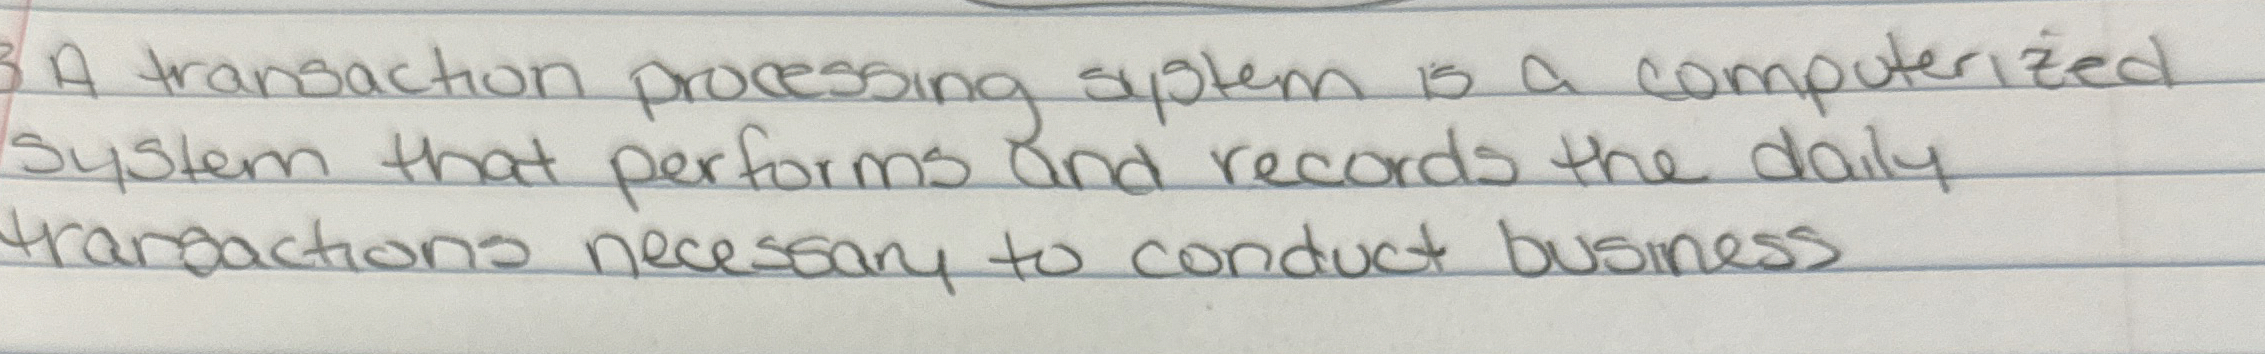 3 A transaction processing system is a computerized
system that performs and records the daily
transactions necessary to conduct business